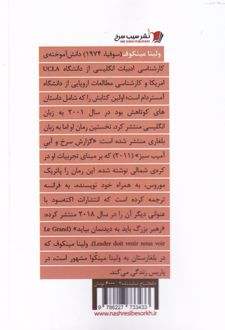 نشر سیب سرخ
ولینا مینکوف (سوفیا، ۱۹۷۴) دانش‌آموخته‌ی
کارشناسی ادبیات انگلیسی از دانشگاه UCLA
امریکا و کارشناسی مطالعات اروپایی از دانشگاه
آمستردام است؛ اولین کتابش را که شامل داستان
های کوتاهش بود در سال ۲۰۰۱ به زبان
انگلیسی منتشر کرد. نخستین رمان او اما به زبان
بلغاری منتشر شده است: «گزارش سرخ و آبی
آمیب سبز» (۲۰۱۱) که بر مبنای تجربیات او در
کره‌ی شمالی نوشته شده. این رمان را پاتریک
موروس، به همراه خود نویسنده، به فرانسه
ترجمه کرده است که انتشارات اکت‌سود با
عنوانی دیگر آن را در سال ۲۰۱۸ منتشر کرده:
«رهبر بزرگ باید به دیدنمان بیاید» (Le Grand
Leader doit venir nous voir). مینکوف که
در بلغارستان به ولینا مینکوا مشهور است، در
پاریس زندگی می‌کند.
9 786227 733433
www.nashresibesorkh.ir